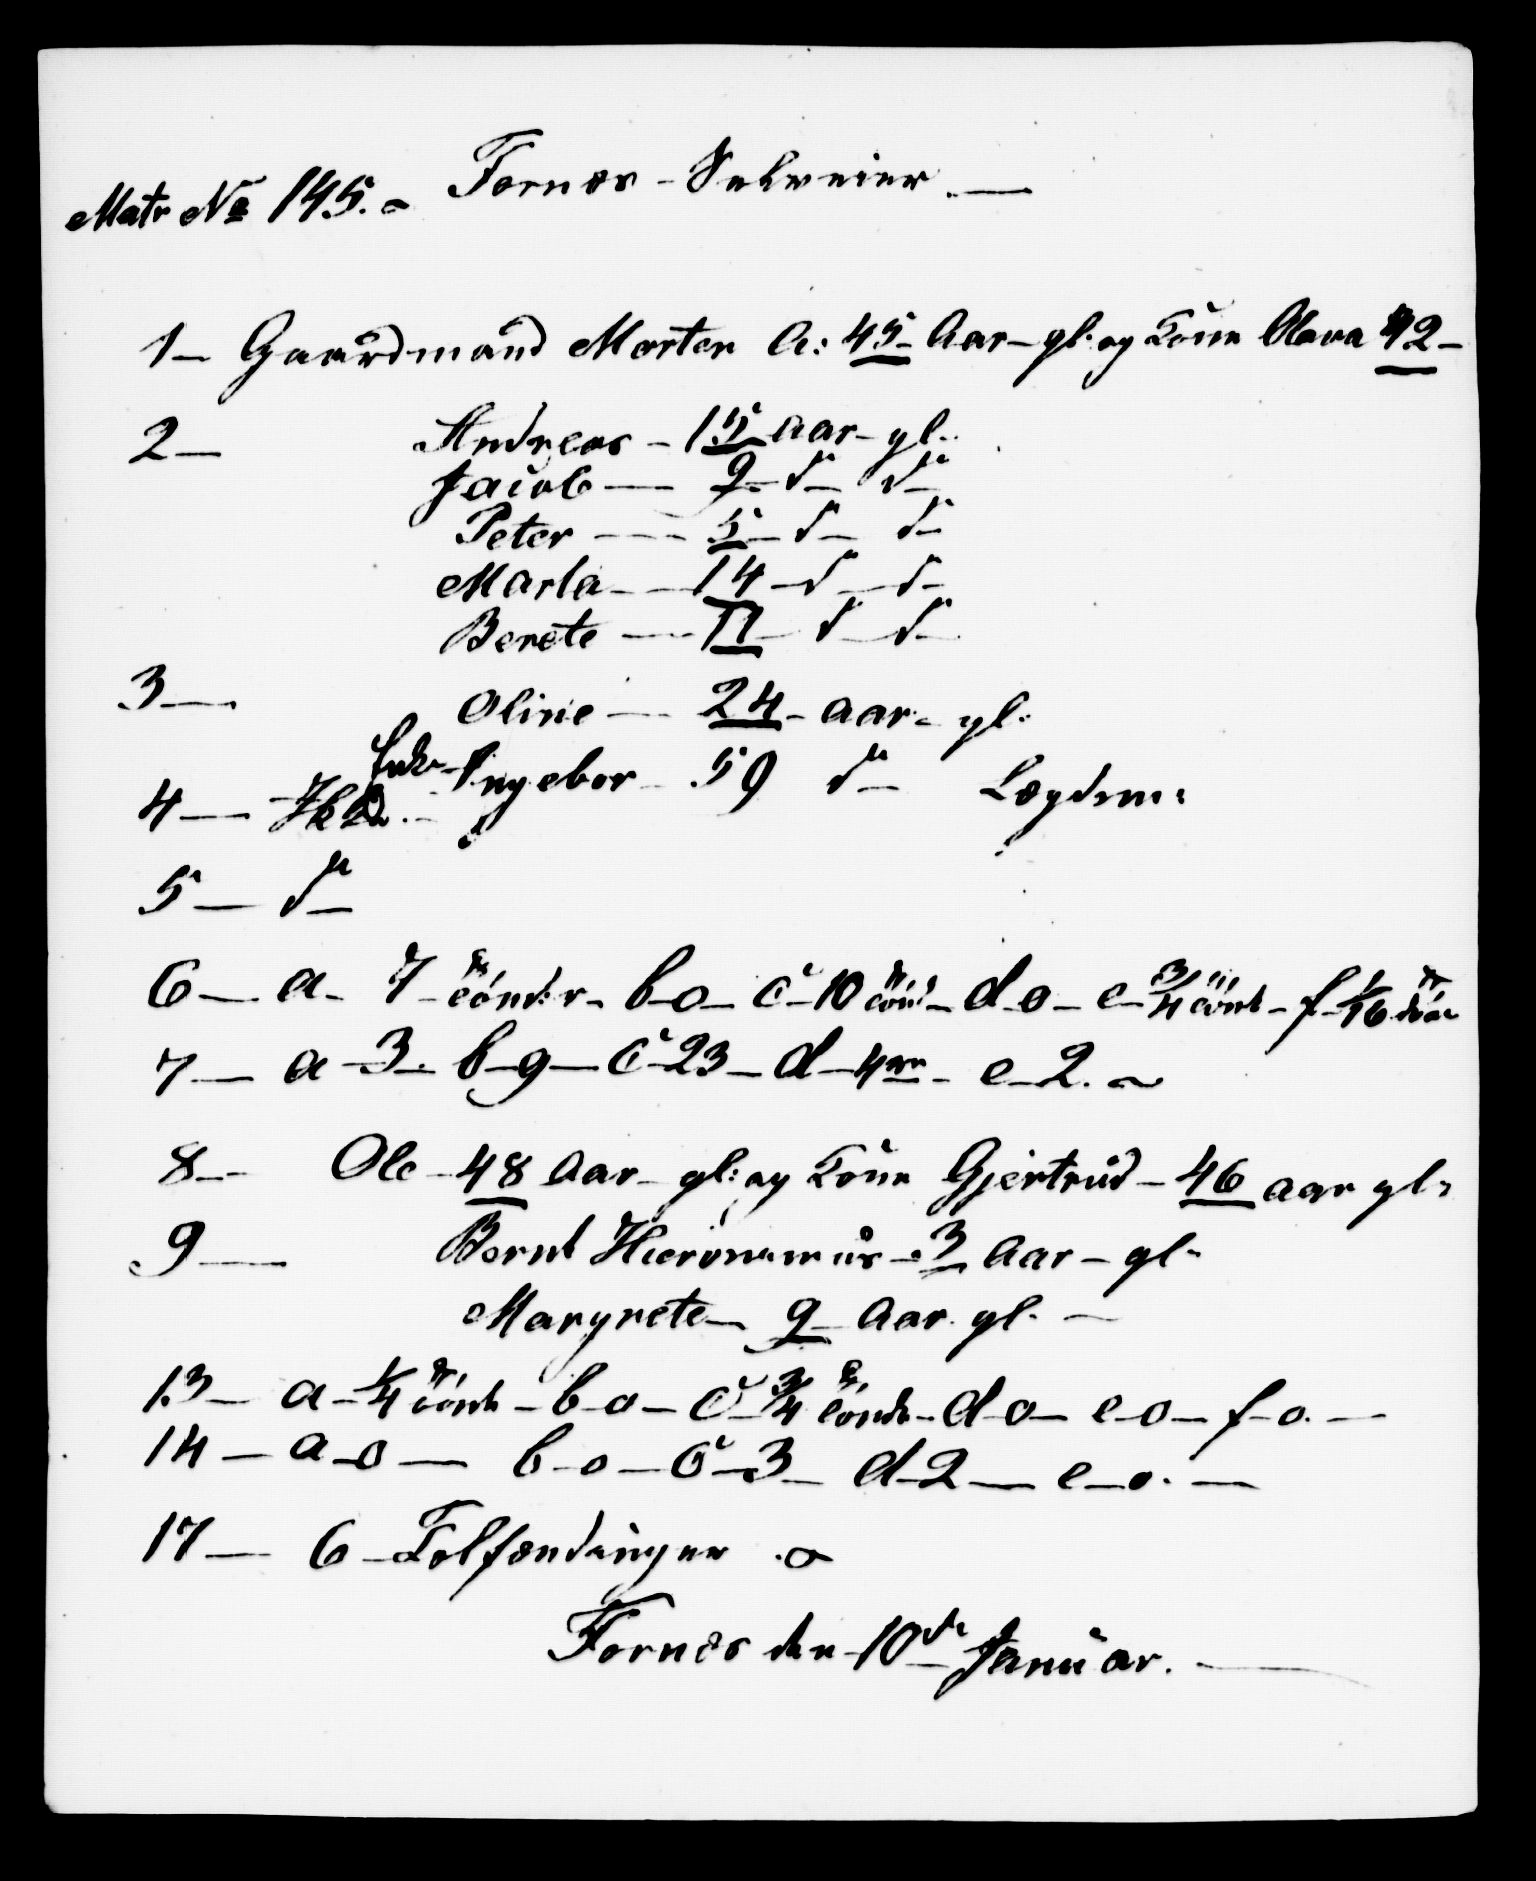 Matr No 145. Fornes - Selveier
1 - Gaardmand Morten A: 45 - Aar - gl. og Kone Olava 42 -
2 - Andreas - 15 aar - gl.
Jacob - 9 - d° - d°
Peter - 5 - d° - d°
Marta - 14 - d° - d°
Berete - 11 - d° - d°
3 - Oline - 24 - aar - gl.
4 - Enke - Ingebor - 59 d° Lægdem:
5 - d°
6 - a - 7 tönder - b - o - c - 10 tönd - d o - e - 3/4 tönd - f - 1/16
7 - a - 3 - b - 9 - c - 23 - d - 4 - e - 2.
8 - Ole - 48 Aar - gl: og Kone Gjertrud - 46 aar gl:
9 - Bernt Hieronimus - 3 Aar - gl.
Margrete - 9 Aar. gl.
13 - a - 1/4 tönd - b - o - c - 3/4 tönde - d - o - e - o - f - o.
14 - a - o - b - o - c - 3 - d - 2 - e - o.
17 - 6 - Folfændinger
Fornes den 10de Januar.